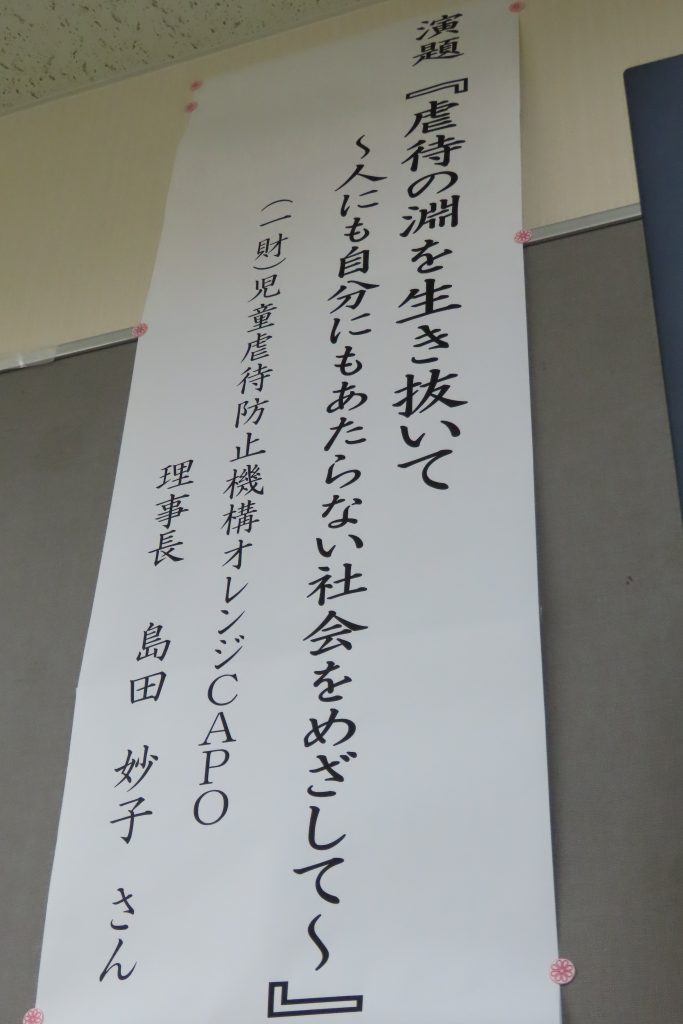 演題『虐待の淵を生き抜いて
～人にも自分にもあたらない社会をめざして～』
（一財）児童虐待防止機構オレンジCAPO
理事長 島田 妙子 さん